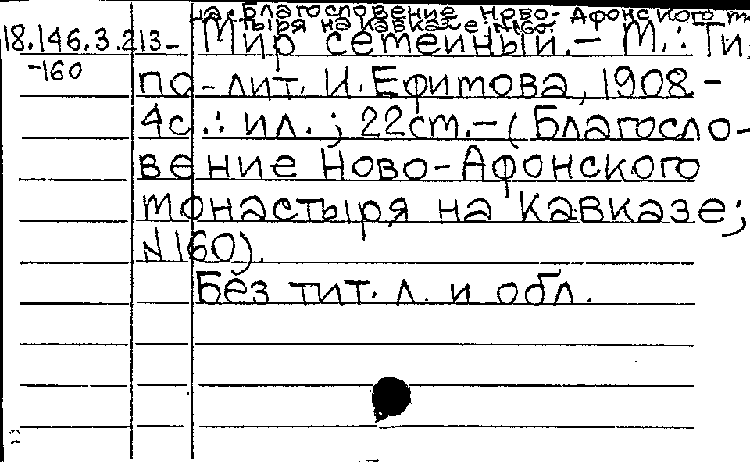 на: Благословение Ново-Афонского м
тыря на Кавказе; №160.
18.146.3.213-
-160
Мир семейный. - М.: Ти
по-лит. И. Ефимова, 1908. -
4с.: ил.; 22см. - (Благосло-
вение Ново-Афонского
монастыря на Кавказе;
№160).
Без тит. л. и обл.